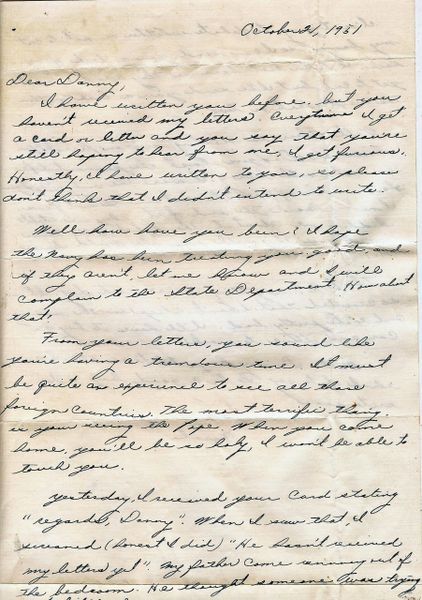 October 21, 1951
Dear Danny,
I have written you before, but you
haven't received my letters. Everytime I get
a card or letter and you say that you're
still hoping to hear from me, I get furious.
Honestly, I have written to you, so please
don't think that I didn't intend to write.
Well how have you been? I hope
the Navy has been treating you good, and
if they aren't, let me know and I will
complain to the State Department. How about
that!
From your letters, you sound like
you're having a tremendous time. It must
be quite an experience to see all those
foreign countries. The most terrific thing
is your seeing the Pope. When you come
home, you'll be so holy, I won't be able to
touch you.
Yesterday, I received your card stating
"regards, Danny". When I saw that, I
screamed (honest I did) "He hasn't received
my letters yet". My father came running out of
the bedroom. He thought someone was trying